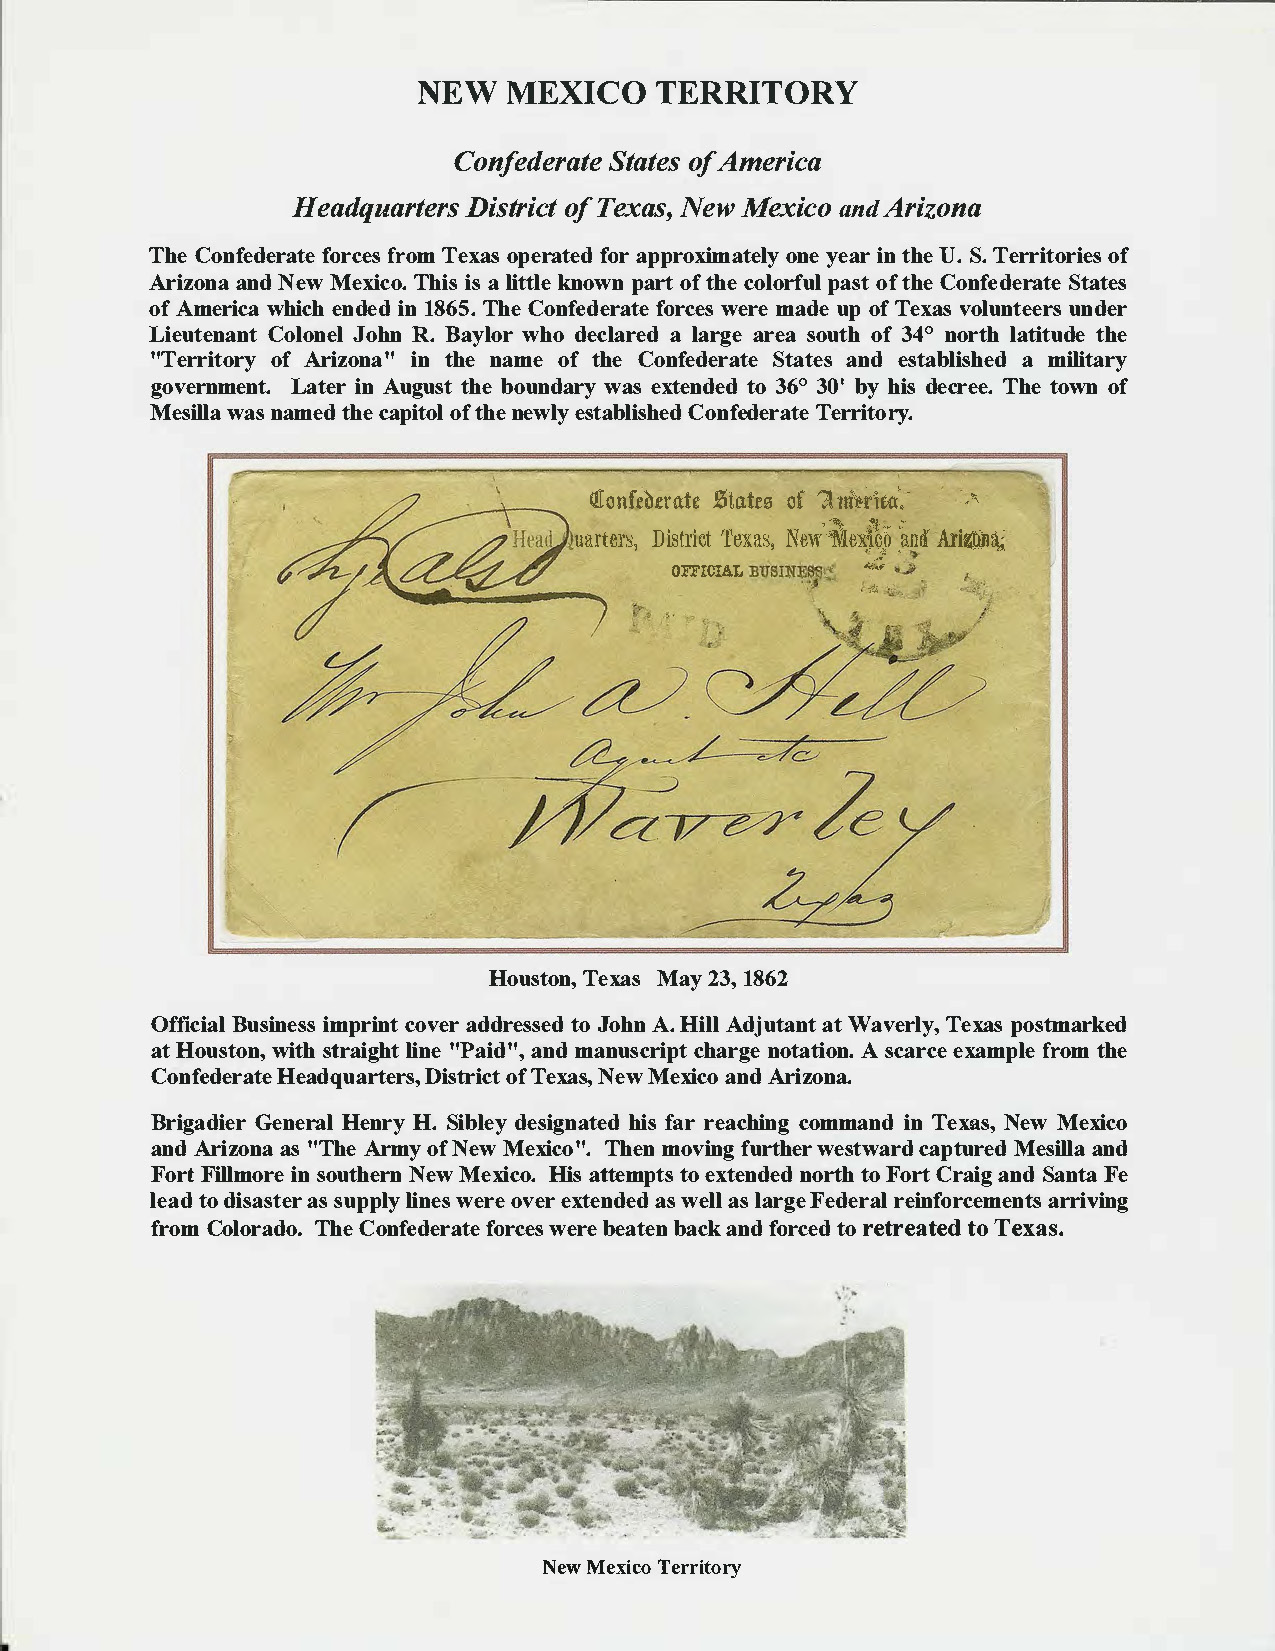 NEW MEXICO TERRITORY
Confederate States of America
Headquarters District of Texas, New Mexico and Arizona
The Confederate forces from Texas operated for approximately one year in the U. S. Territories of
Arizona and New Mexico. This is a little known part of the colorful past of the Confederate States
of America which ended in 1865. The Confederate forces were made up of Texas volunteers under
Lieutenant Colonel John R. Baylor who declared a large area south of 34° north latitude the
"Territory of Arizona" in the name of the Confederate States and established a military
government.  Later in August the boundary was extended to 36° 30' by his decree. The town of
Mesilla was named the capitol of the newly established Confederate Territory.
Confederate States of America.
Head Quarters, District Texas, New Mexico and Arizona,
OFFICIAL BUSINESS
23
PAID
TEX.
Mr John A. Hill
Waverley
Texas
Houston, Texas   May 23, 1862
Official Business imprint cover addressed to John A. Hill Adjutant at Waverly, Texas postmarked
at Houston, with straight line "Paid", and manuscript charge notation. A scarce example from the
Confederate Headquarters, District of Texas, New Mexico and Arizona.
Brigadier General Henry H. Sibley designated his far reaching command in Texas, New Mexico
and Arizona as "The Army of New Mexico".  Then moving further westward captured Mesilla and
Fort Fillmore in southern New Mexico.  His attempts to extended north to Fort Craig and Santa Fe
lead to disaster as supply lines were over extended as well as large Federal reinforcements arriving
from Colorado.  The Confederate forces were beaten back and forced to retreated to Texas.
New Mexico Territory